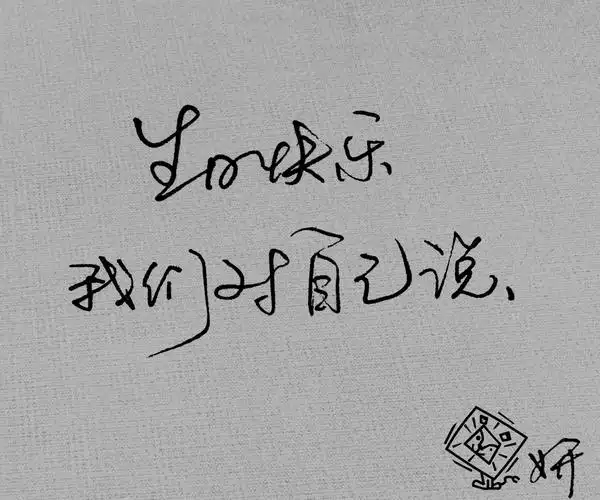 生日快乐
我们对自己说、
妍